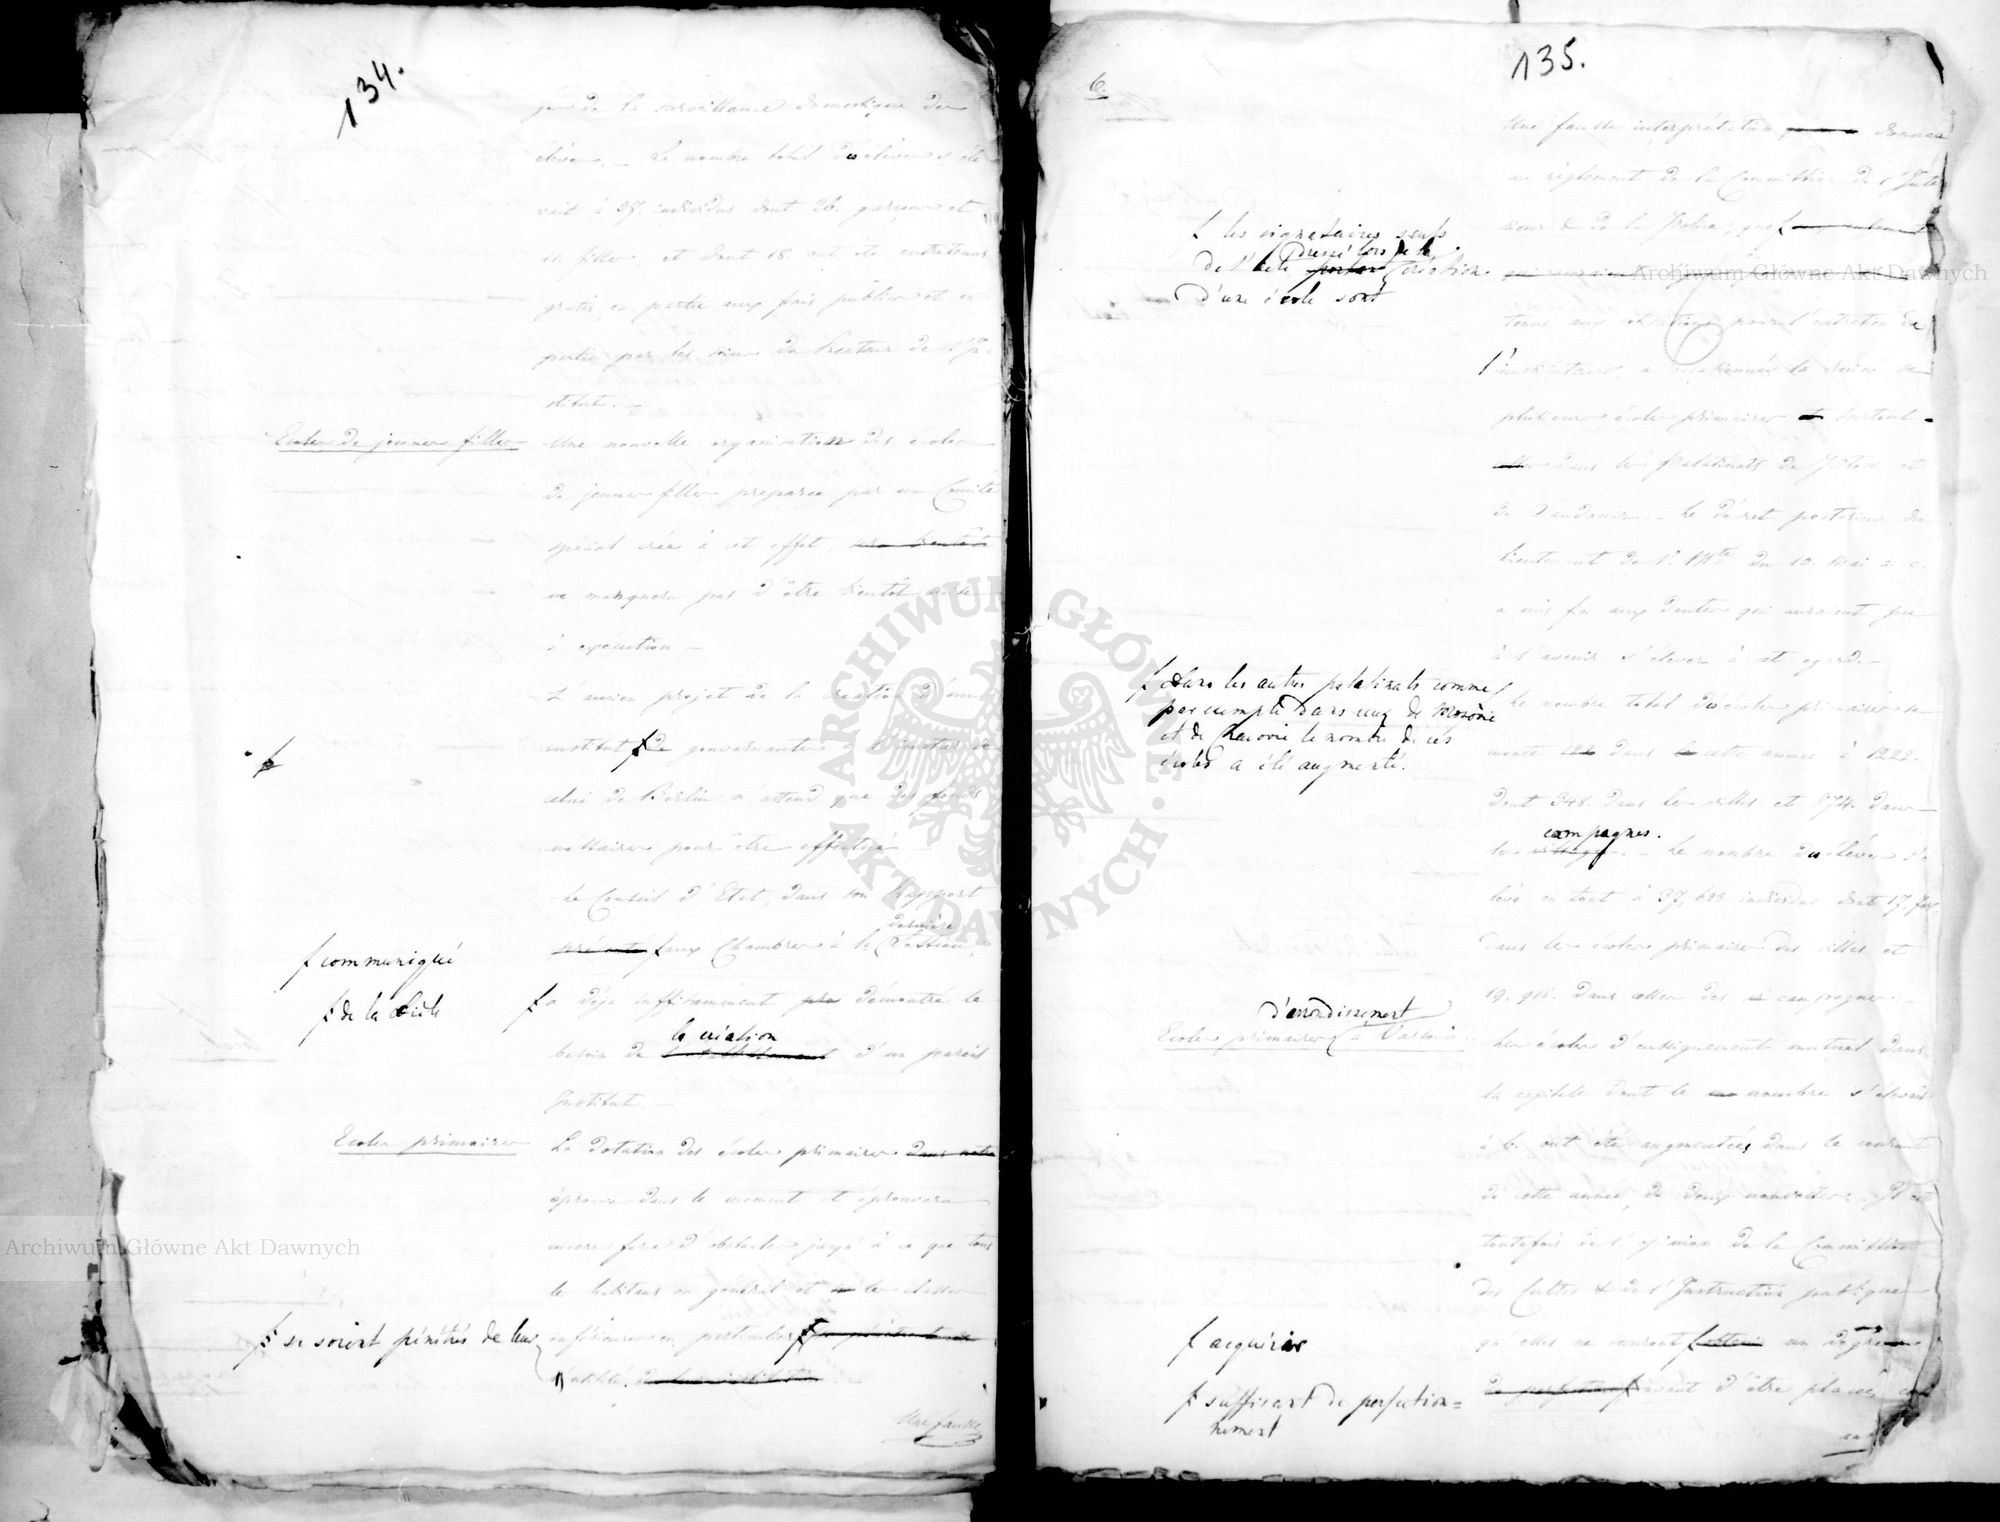 134.
ge de la surveillance domestique des
élèves. — Le nombre total des élèves s'éle
vait à 37. individus dont 26. garçons et
11. filles, et dont 18. ont été entretenus
gratis, en partie aux frais publics et en
partie par les soins du Recteur de l'In-
stitut. —
Ecoles de jeunes filles
Une nouvelle organisation des écoles
de jeunes filles preparée par un Comité
spécial crée à cet effet, sera bientôt
ne manquera pas d'être bientôt mise
à exécution —
L'ancien projet de la création d'un
institut de gouvernantes à l'instar de
celui de Berlin n'attend que des fonds
nécessaires pour être effectué —
Le Conseil d'Etat, dans son Rapport
dernière
présenté aux Chambres à la Session,
f communiqué
f de la Diète
a déja suffisamment démontré le
la création
besoin de l'établissement d'un pareil
Institut. —
Ecoles primaires
La dotation des écoles primaires dans notre
éprouve dans le moment et éprouvera
encore force d'obstacles jusqu'à ce que tous
les habitans en général et les classes
f se soient pénétrés de leur
inférieures en particulier
utilité. de leur institution
Une fausse
135.
6.
Une fausse interprétation donnée
au règlement de la Commission de l'Inté
rieur & de la Police, que
f les signataires seuls
dressé lors de la
de l'acte portant création
d'une école sont
tenus aux cotisations pour l'entretien de
l'instituteur, a occasionné la ruine de
plusieurs écoles primaires et surtout
dans les Palatinats de Plock et
de Sandomir. — Le Décret postérieur du
Lieutenant de S. Mté du 10. Mai a. c.
a mis fin aux doutes qui auraient pu
à l'avenir s'élever à cet égard. —
f Dans les autres palatinats comme
par exemple dans ceux de Masovie
et de Cracovie le nombre de ces
écoles a été augmenté.
Le nombre total des écoles primaires se
monte dans cette année à 1222.
dont 348. dans les villes et 874. dans
campagnes.
les villages. — Le nombre des élèves s'é
lève en tout à 37,623 individus dont 17,705.
dans les écoles primaires des villes et
19,918. dans celles des campagnes. —
d'arrondissement
Ecoles primaires à Varsovie
Les écoles d'enseignement mutuel dans
la capitale dont le nombre s'élevait
à 6. ont été augmentées dans le courant
de cette année, de deux nouvelles. Il est
toutefois de l'opinion de la Commission
des Cultes & de l'Instruction publique
f acquérir
qu'elles ne sauront obtenir un degré
f suffisant de perfection=
nement
de perfection avant d'être placées